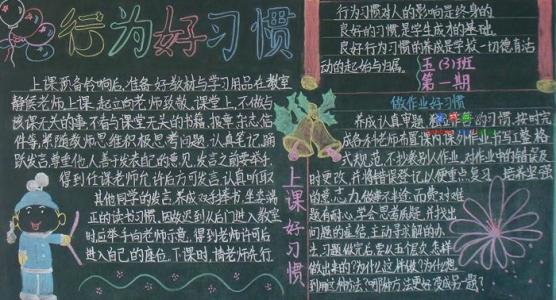 行为好习惯
上课预备铃响后，准备好教材与学习用品在教室
静候老师上课。起立向老师致敬。课堂上，不做与
该课无关的事，不看与课堂无关的书籍、报章、杂志、信
件等，紧随教师思维积极思考问题，认真笔记，踊
跃发言，尊重他人，善于发表自己的意见，发言之前要举手，
得到任课老师允许后方可发言，认真听取
其他同学的发言，养成双手捧书，坐姿端
正的读书习惯，因故迟到从后门进入教室
时应举手向老师示意，得到老师许可后
进入自己的座位。下课时，请老师先行
上课好习惯
行为习惯对人的影响是终身的
良好的习惯是学生成为的基础
良好行为习惯的养成是学校一切德育活
动的起始与归属。
五(3)班
第一期
做作业好习惯
养成认真审题，独立作业的习惯，按时完
成各科老师布置课内课外作业，书写工整，格
式规范，不抄袭别人作业，对作业中的错误及
时更改，并将错误登记以便重点复习，培养坚强
的意志力，做难不半途而费，对难
题有耐心，学会思考质疑，并找出
问题的症结，主动寻求解的办
法，习题做完后，要从五个层次
做出来的？为什么这样做？为什么想
到用这种方法？